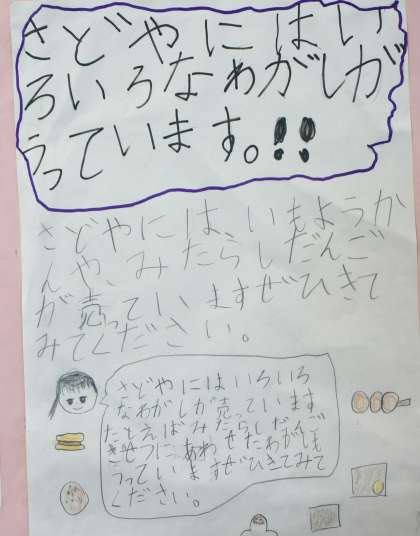 さどやにはい
ろいろなわがしが
うっています。!!
さどやには、いもようか
んや、みたらしだんご
が売っていますぜひきて
みてください。
さどやにはいろいろ
なわがしが売っています
たとえばみたらしだんご
きせつにあわせたわがしも
うっていますぜひきてみて
ください。